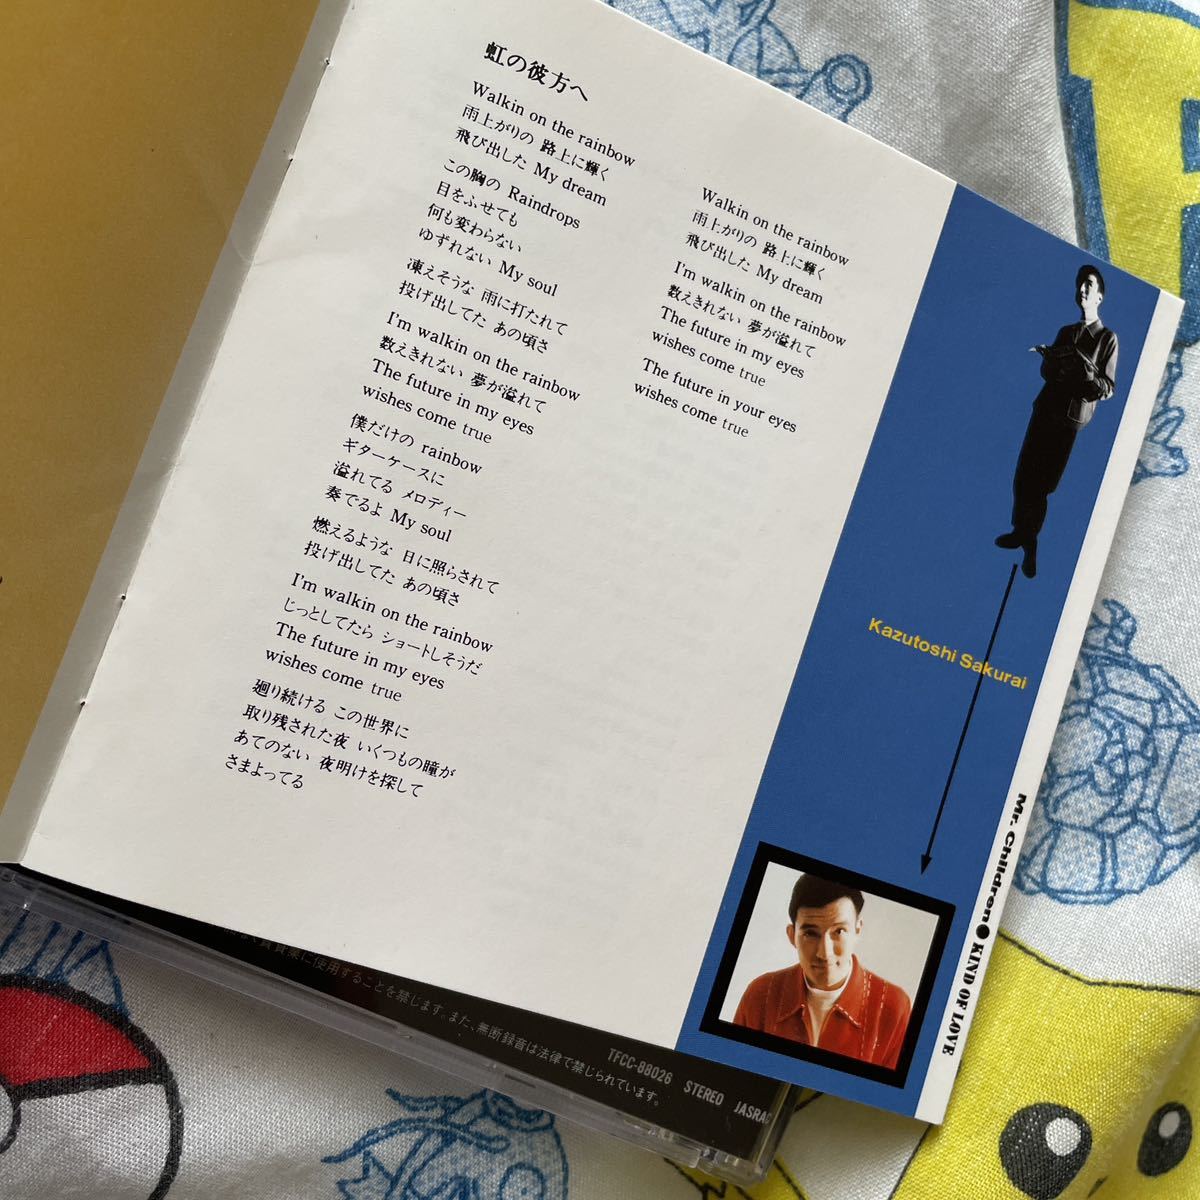 虹の彼方へ
Walkin on the rainbow
雨上がりの 路上に輝く
飛び出した My dream
この胸の Raindrops
目をふせても
何も変わらない
ゆずれない My soul
凍えそうな 雨に打たれて
投げ出してた あの頃さ
I'm walkin on the rainbow
数えきれない 夢が溢れて
The future in my eyes
wishes come true
僕だけの rainbow
ギターケースに
溢れてる メロディー
奏でるよ My soul
燃えるような 日に照らされて
投げ出してた あの頃さ
I'm walkin on the rainbow
じっとしてたら ショートしそうだ
The future in my eyes
wishes come true
廻り続ける この世界に
取り残された夜 いくつもの瞳が
あてのない 夜明けを探して
さまよってる
Walkin on the rainbow
雨上がりの 路上に輝く
飛び出した My dream
I'm walkin on the rainbow
数えきれない 夢が溢れて
The future in my eyes
wishes come true
The future in your eyes
wishes come true
Kazutoshi Sakurai
Mr. Children●KIND OF LOVE
賃貸業に使用することを禁じます。また、無断録音は法律で禁じられています。
TFCC-88026 STEREO JASRAC